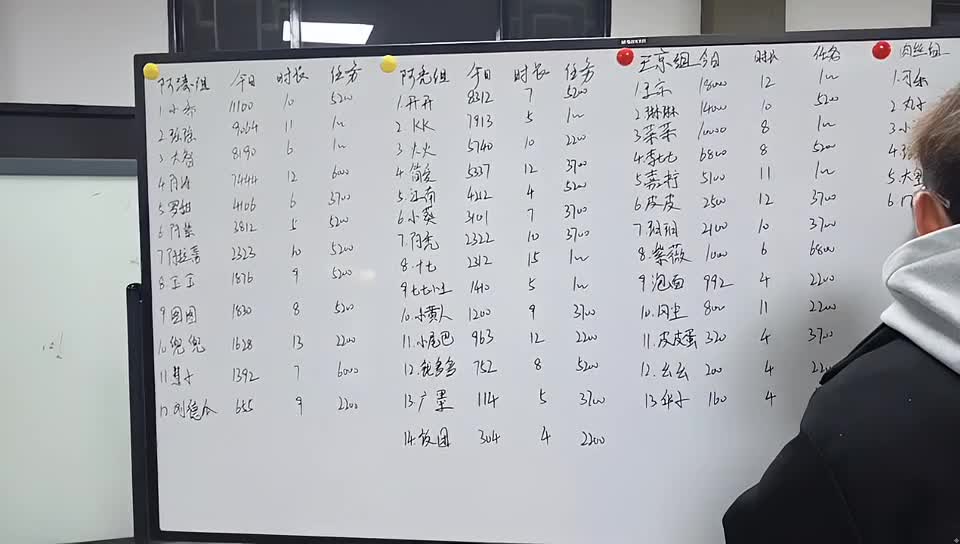 今日 时长 任务
1.小乔 11100 10 5200
2. 9064 11 1w
3.大智 8190 6 1w
4. 7444 12 6000
5.罗甜 4106 6 3700
6.阿紫 3812 5 5200
7.阿拉蕾 2323 10 5200
8.王王 1876 9 5200
9.圆圆 1830 8 5200
10.兜兜 1628 13 2200
11. 1392 7 6000
12.刘德今 655 9 2200
阿亮组 今日 时长 任务
1.开开 8312 7 5200
2.KK 7913 5 1w
3.火火 5740 10 2200
4.简安 5337 12 3700
5.江南 4212 4 5200
6.小葵 3401 7 3700
7.阿亮 2322 10 3700
8.十七 2312 15 1w
9.七七小土 1410 5 1w
10.小黄人 1200 9 3700
11.小尾巴 963 12 2200
12.钱多多 752 8 5200
13.广墨 114 5 3700
14.饭团 304 4 2200
王京组 今日 时长 任务
1.王京 18000 12 1w
2.琳琳 14000 10 5200
3.菜菜 10000 8 1w
4.李七七 6800 8 5200
5.嘉柠 5100 11 1w
6.皮皮 2500 12 3700
7.玥玥 2100 10 3700
8.紫薇 1000 6 6800
9.泡面 992 4 2200
10.风尘 800 11 2200
11.皮皮蛋 320 4 3700
12.幺幺 200 4
13.华小 160 4
肉丝组
1.可乐
2.丸子
3.小
4.
5.大
6.